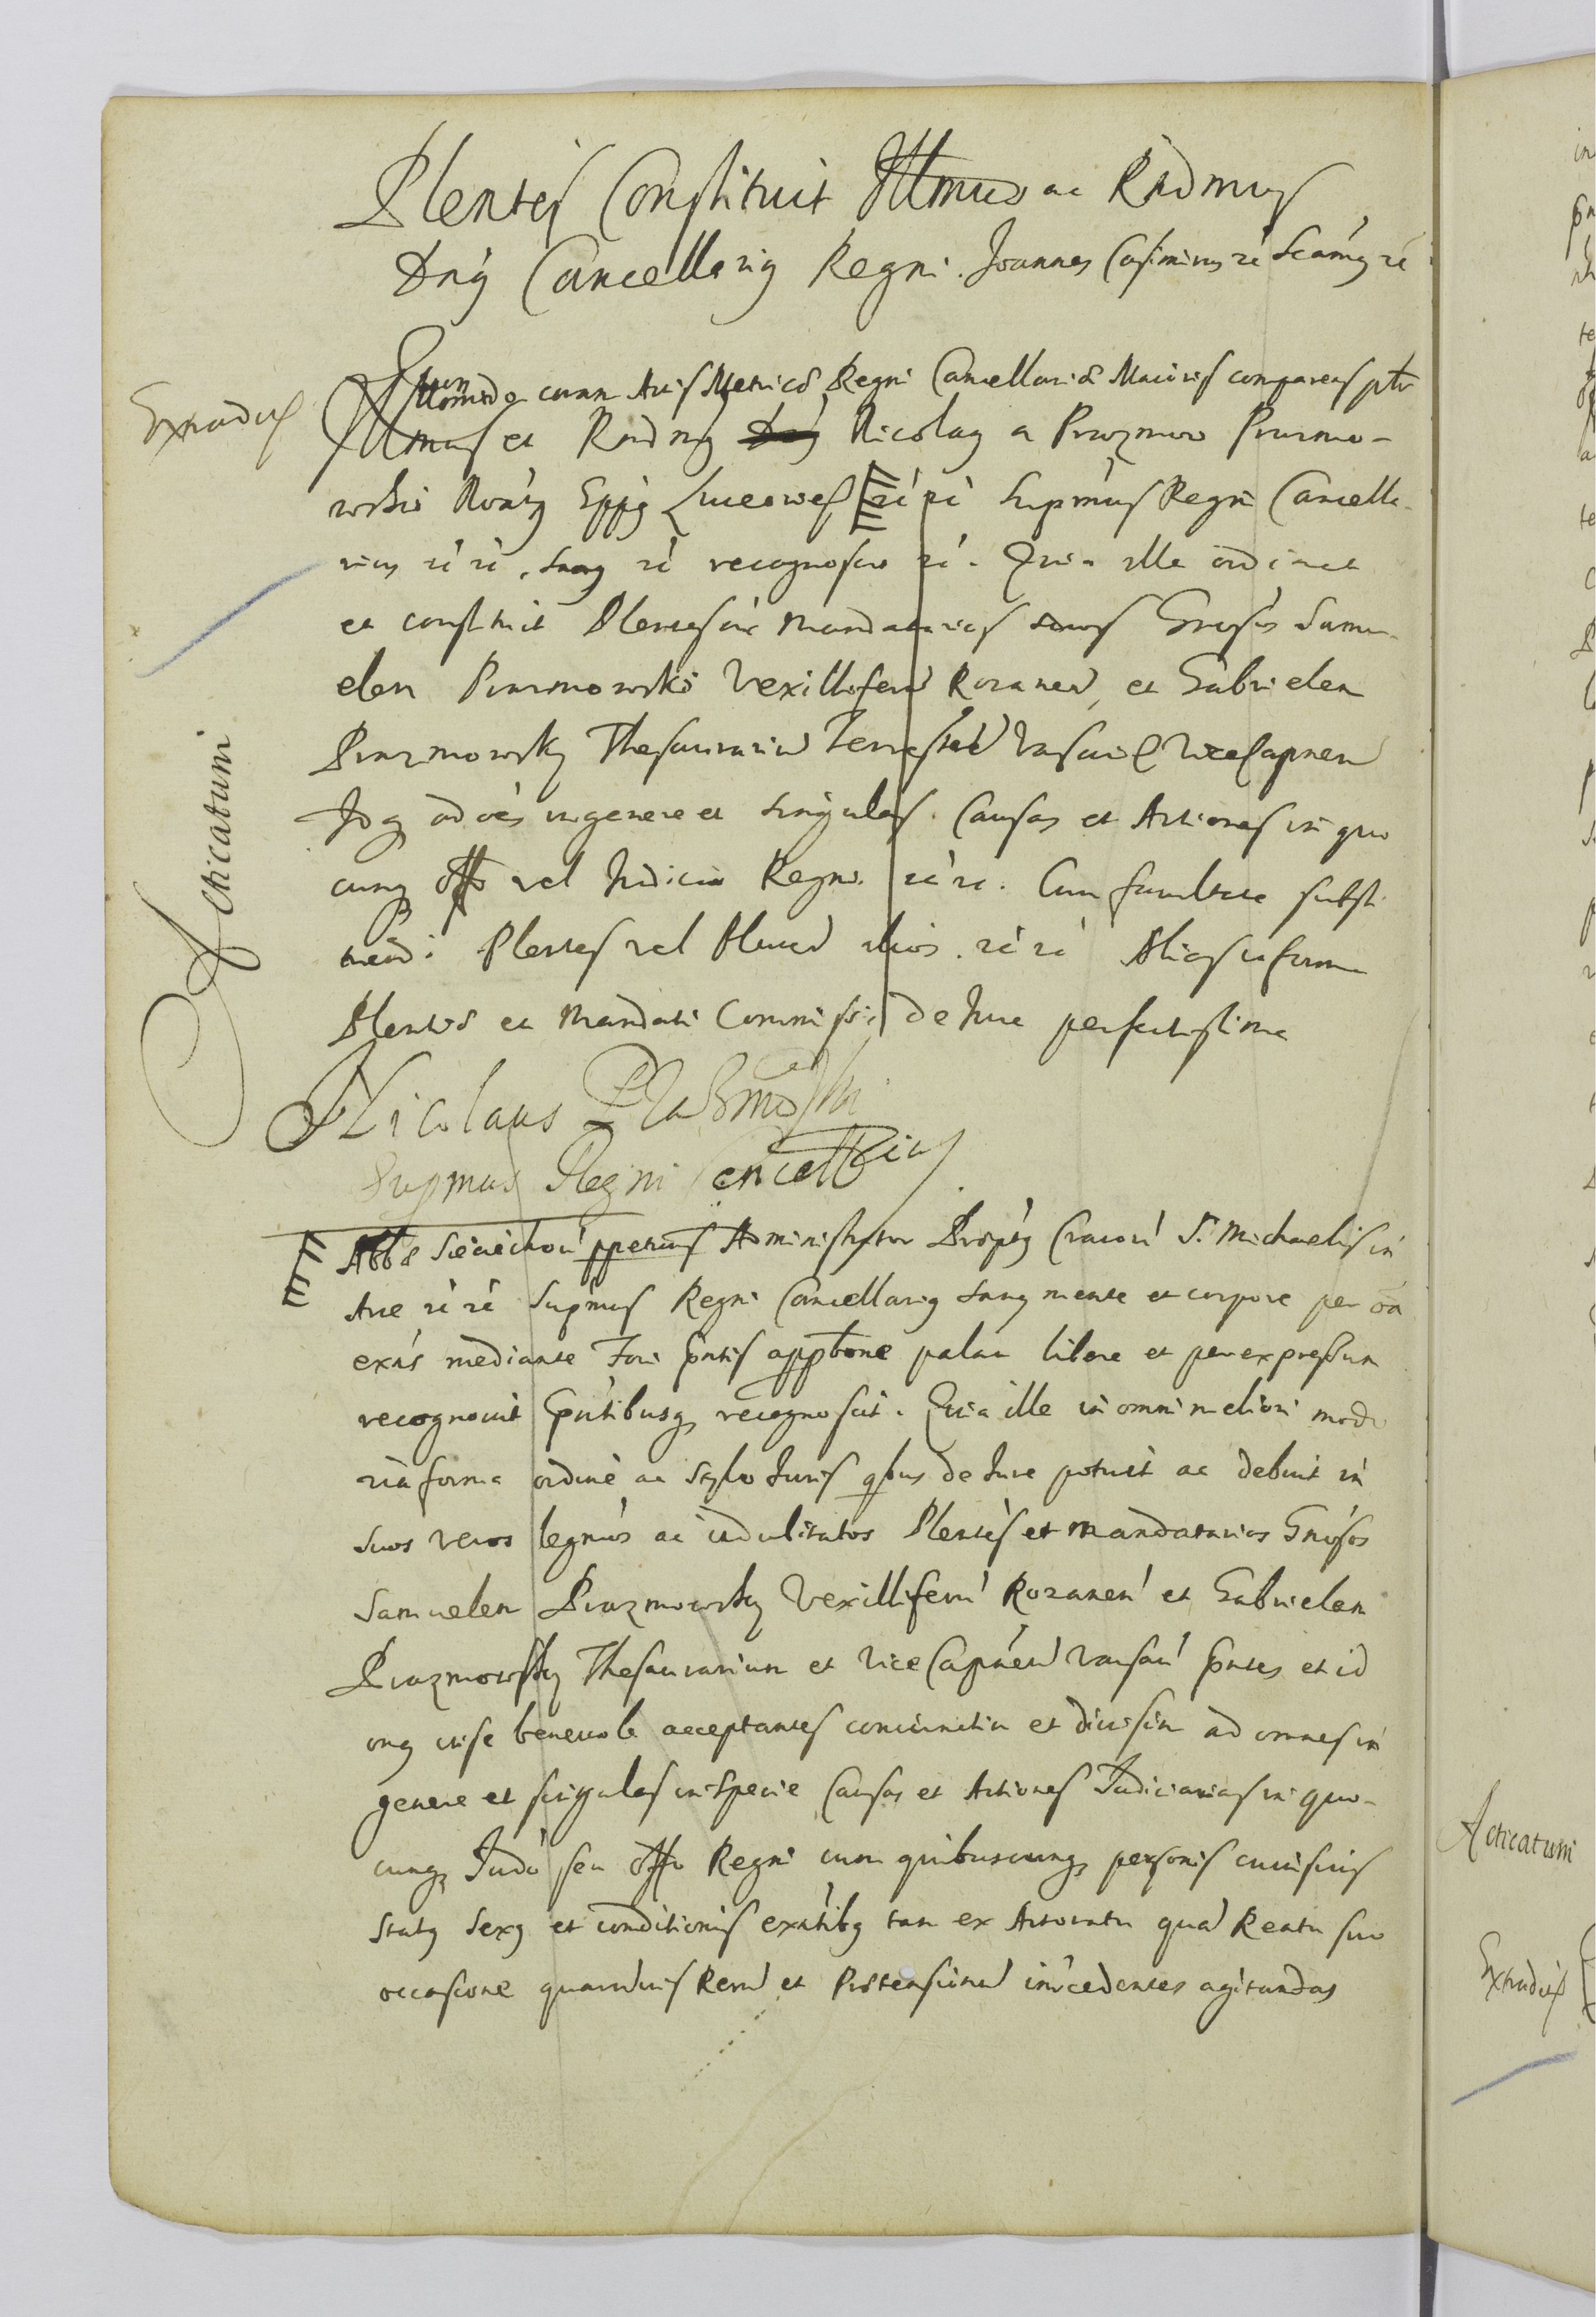 Plentes Constituit Illmus ac Rndmus
Dnus Cancellarius Regni. Joannes Casimirus rè Scimus rè
Extradit
coram Actis Metrices Regni Cancellariæ Maioris comparens pter
Illmus et Rndmus Nicolaus a Prazmow Prazmo-
wski Nomin Eppus Luceorien rè rè Suprmus Regni Cancella-
rius rè rè, Sanus rè recognoscit rè. Quia ille ordinat
et constituit Plentes ac Mandatarios suos Gnrosos Samu-
elem Prazmowski Vexilliferum Rozanen, et Gabrielem
Prazmowsky Thesaurarium Terrestrem Varsavien Vicecapneum
ad oës in genere et singulas Causas et Actiones in quo
cunq offo vel Judicio Regni rè rè. Cum facultate substi
tuendi Plentes vel Plures alios rè rè Alias in forma
Plentiæ et Mandati Commissi de Jure perfectissima
Acticatum
Nicolaus Prażmowski
Supmus Regni Cancellarius
Abbs Sieciechoń ppetuus Administrator Præptus Cracovi S. Michaelis in
Arce rè rè Suprmus Regni Cancellarius Sanus mente et corpore per oa
exñs mediante Fori sontis apptione palam libere et per expressum
recognovit Pñtibusq recognoscit. Quia ille in omni meliori modo
via forma ordine ac stylo Juris qbus de Jure potuit ac debuit in
suos veros legmos ac indubitatos Plentes et Mandatarios Gnrosos
Samuelem Prazmowsky Vexilliferum Rozanen et Gabrielem
Prazmowsky Thesaurarium et Vice Capneum Varsavi Pntes et id
onus in se benevole acceptantes coniunctim et divisim ad omnes in
genere et singulas in specie Causas et Actiones Judiciarias in quo-
cunq Judo seu offo Regni cum quibuscunq personis cuiusvis
status sexus et conditionis exñtibus tam ex Actoratu quam Reatu suo
occasione quarumvis Rerum et Prætensionum intercedentes agitandas
Acticatum
Extradit